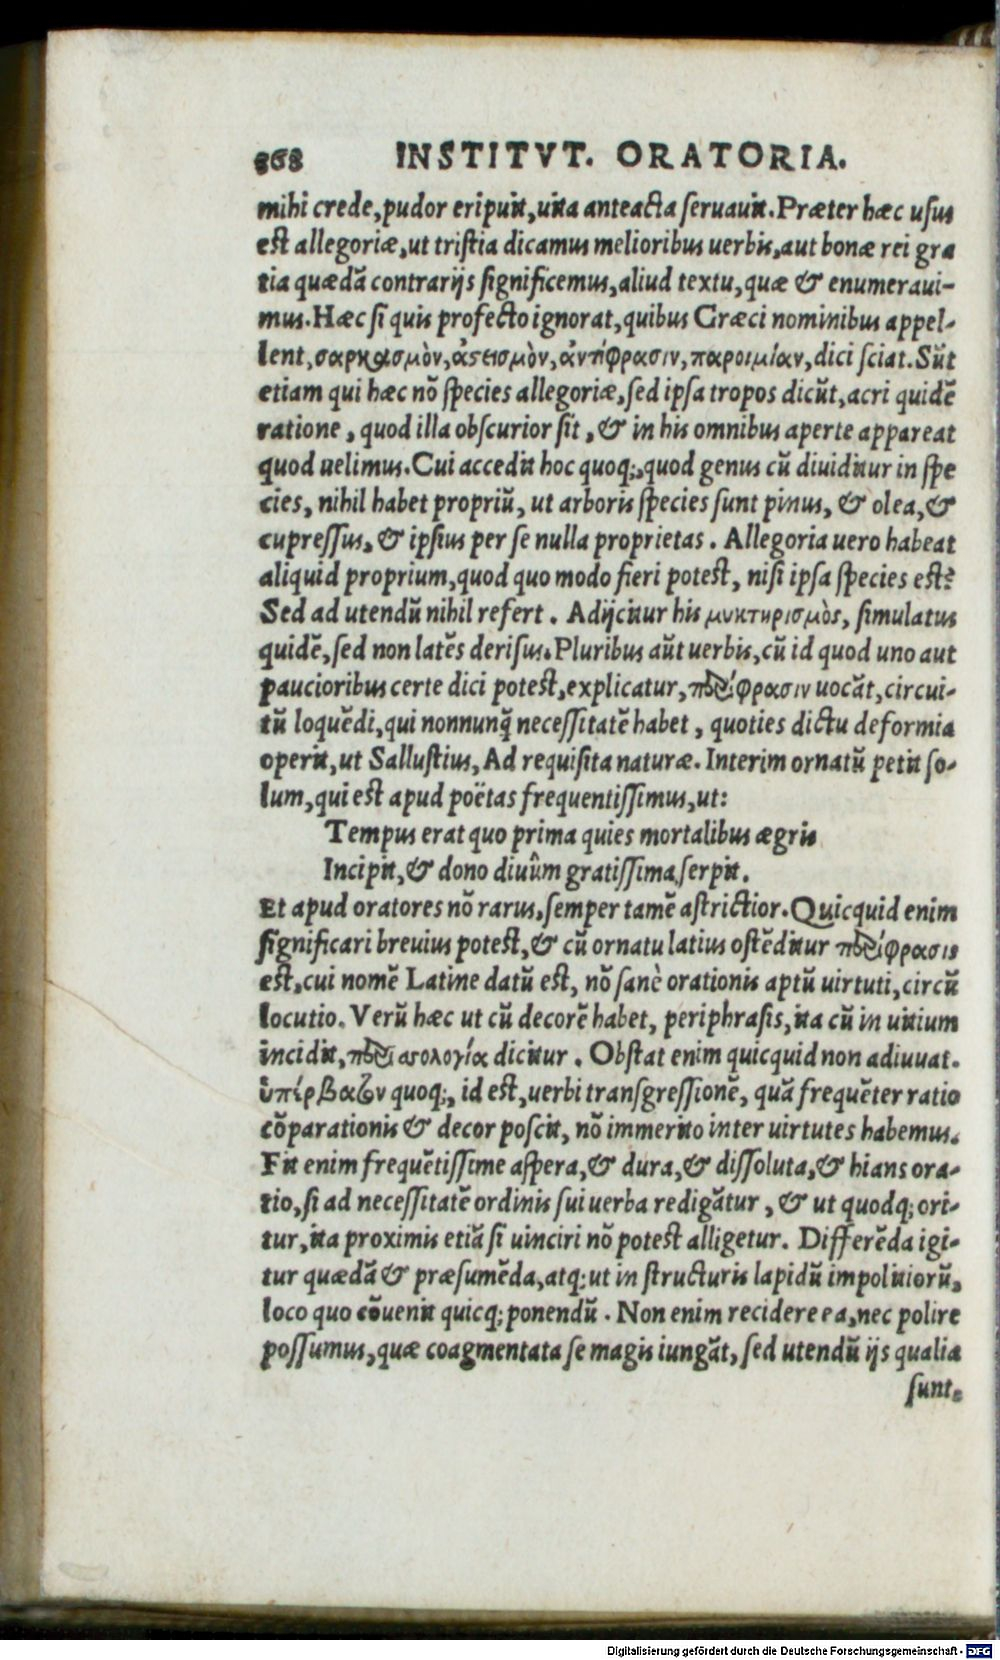 868 INSTITVT. ORATORIA.
mihi crede, pudor eripuit, uita anteacta seruauit. Præter hæc usus
est allegoriæ, ut tristia dicamus melioribus uerbis, aut bonæ rei gra
tia quædā contrarijs significemus, aliud textu, quæ & enumeraui-
mus. Hæc si quis profecto ignorat, quibus Græci nominibus appel-
lent, σαρκασμὸν, ἀστεισμὸν, ἀντίφρασιν, παροιμίαν, dici sciat. Sūt
etiam qui hæc nō species allegoriæ, sed ipsa tropos dicūt, acri quidē
ratione, quod illa obscurior sit, & in his omnibus aperte appareat
quod uelimus. Cui accedit hoc quoq;, quod genus cū diuiditur in spe
cies, nihil habet propriū, ut arboris species sunt pinus, & olea, &
cupressus, & ipsius per se nulla proprietas. Allegoria uero habeat
aliquid proprium, quod quo modo fieri potest, nisi ipsa species est?
Sed ad utendū nihil refert. Adijcitur his μυκτηρισμὸς, simulatus
quidē, sed non latēs derisus. Pluribus aūt uerbis, cū id quod uno aut
paucioribus certe dici potest, explicatur, περίφρασιν uocāt, circui-
tū loquēdi, qui nonnunq̄ necessitatē habet, quoties dictu deformia
operit, ut Sallustius, Ad requisita naturæ. Interim ornatū petit so-
lum, qui est apud poëtas frequentissimus, ut:
Tempus erat quo prima quies mortalibus ægris
Incipit, & dono diuûm gratissima serpit.
Et apud oratores nō rarus, semper tamē astrictior. Quicquid enim
significari breuius potest, & cū ornatu latius ostēditur περίφρασις
est, cui nomē Latine datū est, nō sanè orationis aptū uirtuti, circū
locutio. Verū hæc ut cū decorē habet, periphrasis, ita cū in uitium
incidit, περισσολογία dicitur. Obstat enim quicquid non adiuuat.
ὑπέρβατον quoq;, id est, uerbi transgressionē, quā frequēter ratio
cōparationis & decor poscit, nō immerito inter uirtutes habemus.
Fit enim frequētissime aspera, & dura, & dissoluta, & hians ora-
tio, si ad necessitatē ordinis sui uerba redigātur, & ut quodq; ori-
tur, ita proximis etiā si uinciri nō potest alligetur. Differēda igi-
tur quædā & præsumēda, atq; ut in structuris lapidū impolitiorū,
loco quo cōuenit quicq; ponendū. Non enim recidere ea, nec polire
possumus, quæ coagmentata se magis iungāt, sed utendū ijs qualia
sunt.
Digitalisierung gefördert durch die Deutsche Forschungsgemeinschaft - DFG